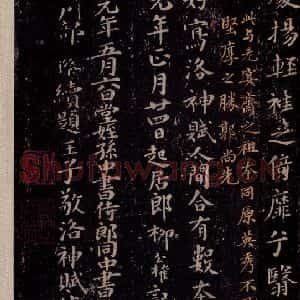 揚輕袿之倚靡兮翳
此与元宴齋之祖本同原英秀不
堅厚之勝郭尚先
好寫洛神賦人間合有數本
元年正月廿四日起居郎柳公權記
元年五月六日堂姪孫中書侍郎同中書
部璨續題王子敬洛神賦